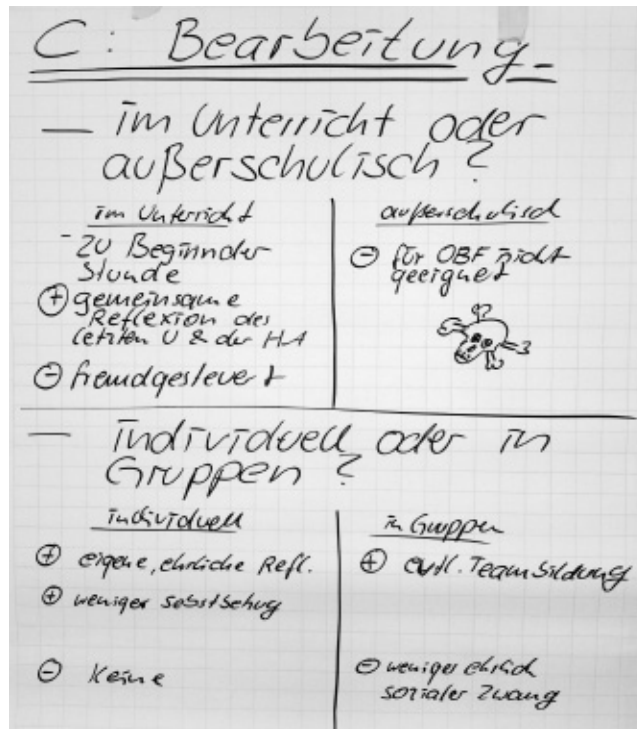 C: Bearbeitung
— im Unterricht oder
außerschulisch?
im Unterricht
- zu Beginn der
Stunde
⊕ gemeinsame
Reflexion des
letzten U & der HA
⊖ fremdgesteuert
außerschulisch
⊖ für OBF nicht
geeignet
— individuell oder in
Gruppen?
individuell
⊕ eigene, ehrliche Refl.
⊕ weniger
⊖ Keine
in Gruppen
⊕ evtl. Teambildung
⊖ weniger ehrlich
sozialer Zwang